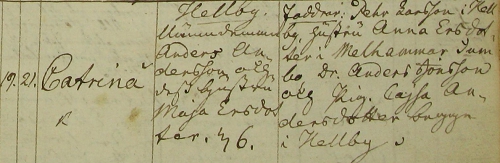 19. 21. Catrina
Hellby.
Anders An-
dersson och
des hustru
Maja Ersdot
ter. 26.
Faddrar: Pehr Larsson i Hell
by, hustru Anna Ersdot
ter i Melhammar Tum
bo, Dr. Anders Jonsson
och Pig. Cajsa An-
dersdotter
i Hellby